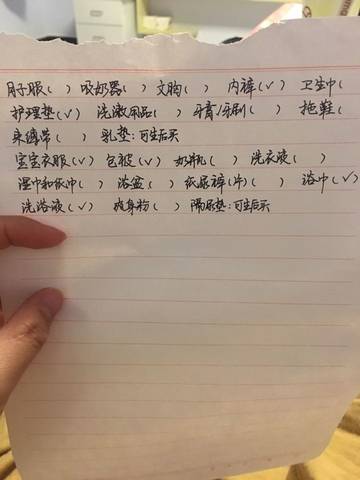 月子服( ) 吸奶器( ) 文胸( ) 内裤(✓) 卫生巾(
护理垫(✓) 洗漱用品( ) 牙膏/牙刷( ) 拖鞋(
束缚带( ) 乳垫:可生后买
宝宝衣服(✓) 包被(✓) 奶瓶( ) 洗衣液( )
湿巾和纸巾( ) 浴盆( ) 纸尿裤(片)( ) 浴巾(✓)
洗浴液(✓) 爽身粉( ) 隔尿垫:可生后买